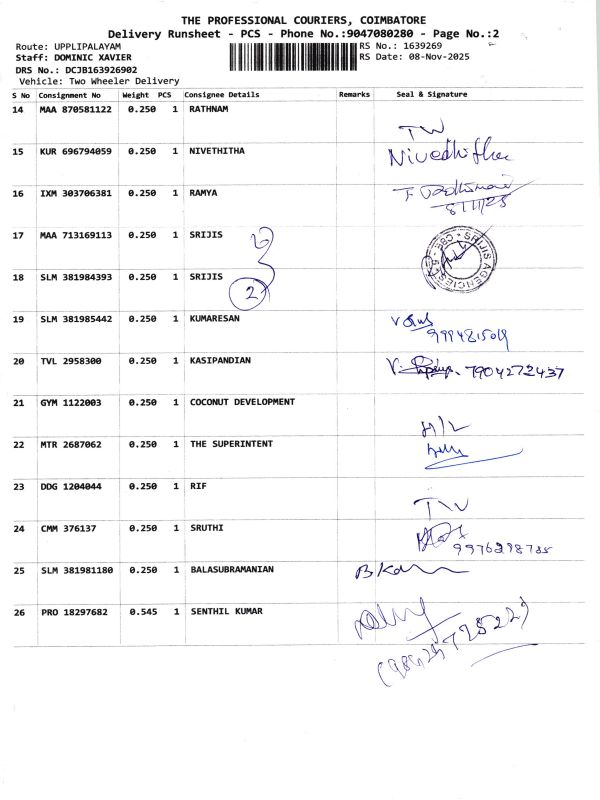 THE PROFESSIONAL COURIERS, COIMBATORE
Delivery Runsheet - PCS - Phone No.:9047080280 - Page No.:2
Route: UPPLIPALAYAM RS No.: 1639269
Staff: DOMINIC XAVIER RS Date: 08-Nov-2025
DRS No.: DCJB163926902
Vehicle: Two Wheeler Delivery
S No Consignment No Weight PCS Consignee Details Remarks Seal & Signature
14 MAA 870581122 0.250 1 RATHNAM
TW
15 KUR 696794059 0.250 1 NIVETHITHA
Nivedhitha
16 IXM 303706381 0.250 1 RAMYA
8/11/25
17 MAA 713169113 0.250 1 SRIJIS
SRIJIS AGENCIES
18 SLM 381984393 0.250 1 SRIJIS
2
19 SLM 381985442 0.250 1 KUMARESAN
20 TVL 2958300 0.250 1 KASIPANDIAN
7904272437
21 GYM 1122003 0.250 1 COCONUT DEVELOPMENT
22 MTR 2687062 0.250 1 THE SUPERINTENT
23 DDG 1204044 0.250 1 RIF
TW
24 CMM 376137 0.250 1 SRUTHI
25 SLM 381981180 0.250 1 BALASUBRAMANIAN
26 PRO 18297682 0.545 1 SENTHIL KUMAR